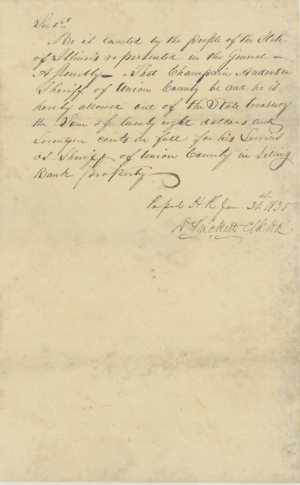 Sec 1st
Be it enacted by the people of the State
of Illinois represented in the General
Assembly — That Champion Anderson
Sheriff of Union County be and he is
hereby allowed out of the State treasury
the Sum of twenty eight dollars and
cents in full for his Services
as Sheriff of Union County in Selling
Bank property
Passed H. R. Jan 1835
D Prickett Clk H R